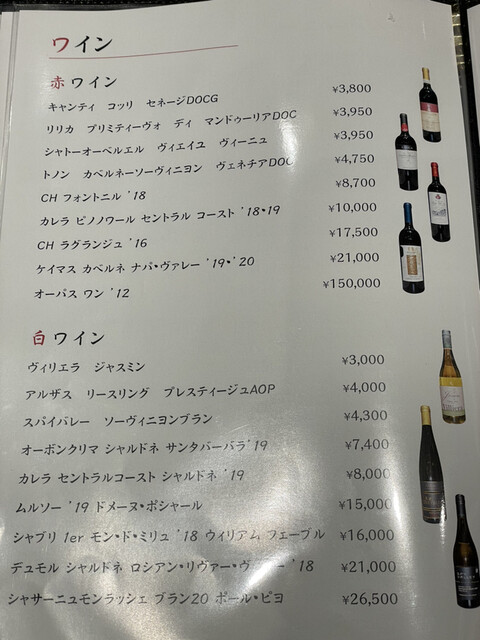 ワイン
赤ワイン
キャンティ コッリ セネージDOCG ¥3,800
リリカ プリミティーヴォ ディ マンドゥーリアDOC ¥3,950
シャトーオーベルエル ヴィエイユ ヴィーニュ ¥3,950
トノン カベルネーソーヴィニヨン ヴェネチアDOC ¥4,750
CH フォントニル '18 ¥8,700
カレラ ピノノワール セントラル コースト '18・19 ¥10,000
CH ラグランジュ '16 ¥17,500
ケイマス カベルネ ナパ・ヴァレー '19・'20 ¥21,000
オーパス ワン '12 ¥150,000
白ワイン
ヴィリエラ ジャスミン ¥3,000
アルザス リースリング プレスティージュAOP ¥4,000
スパイバレー ソーヴィニヨンブラン ¥4,300
オーボンクリマ シャルドネ サンタバーバラ'19 ¥7,400
カレラ セントラルコースト シャルドネ '19 ¥8,000
ムルソー '19 ドメーヌ・ポシャール ¥15,000
シャブリ 1er モン・ド・ミリュ '18 ウィリアム フェーブル ¥16,000
デュモル シャルドネ ロシアン・リヴァー・ '18 ¥21,000
シャサーニュモンラッシェ ブラン20 ポール・ピヨ ¥26,500